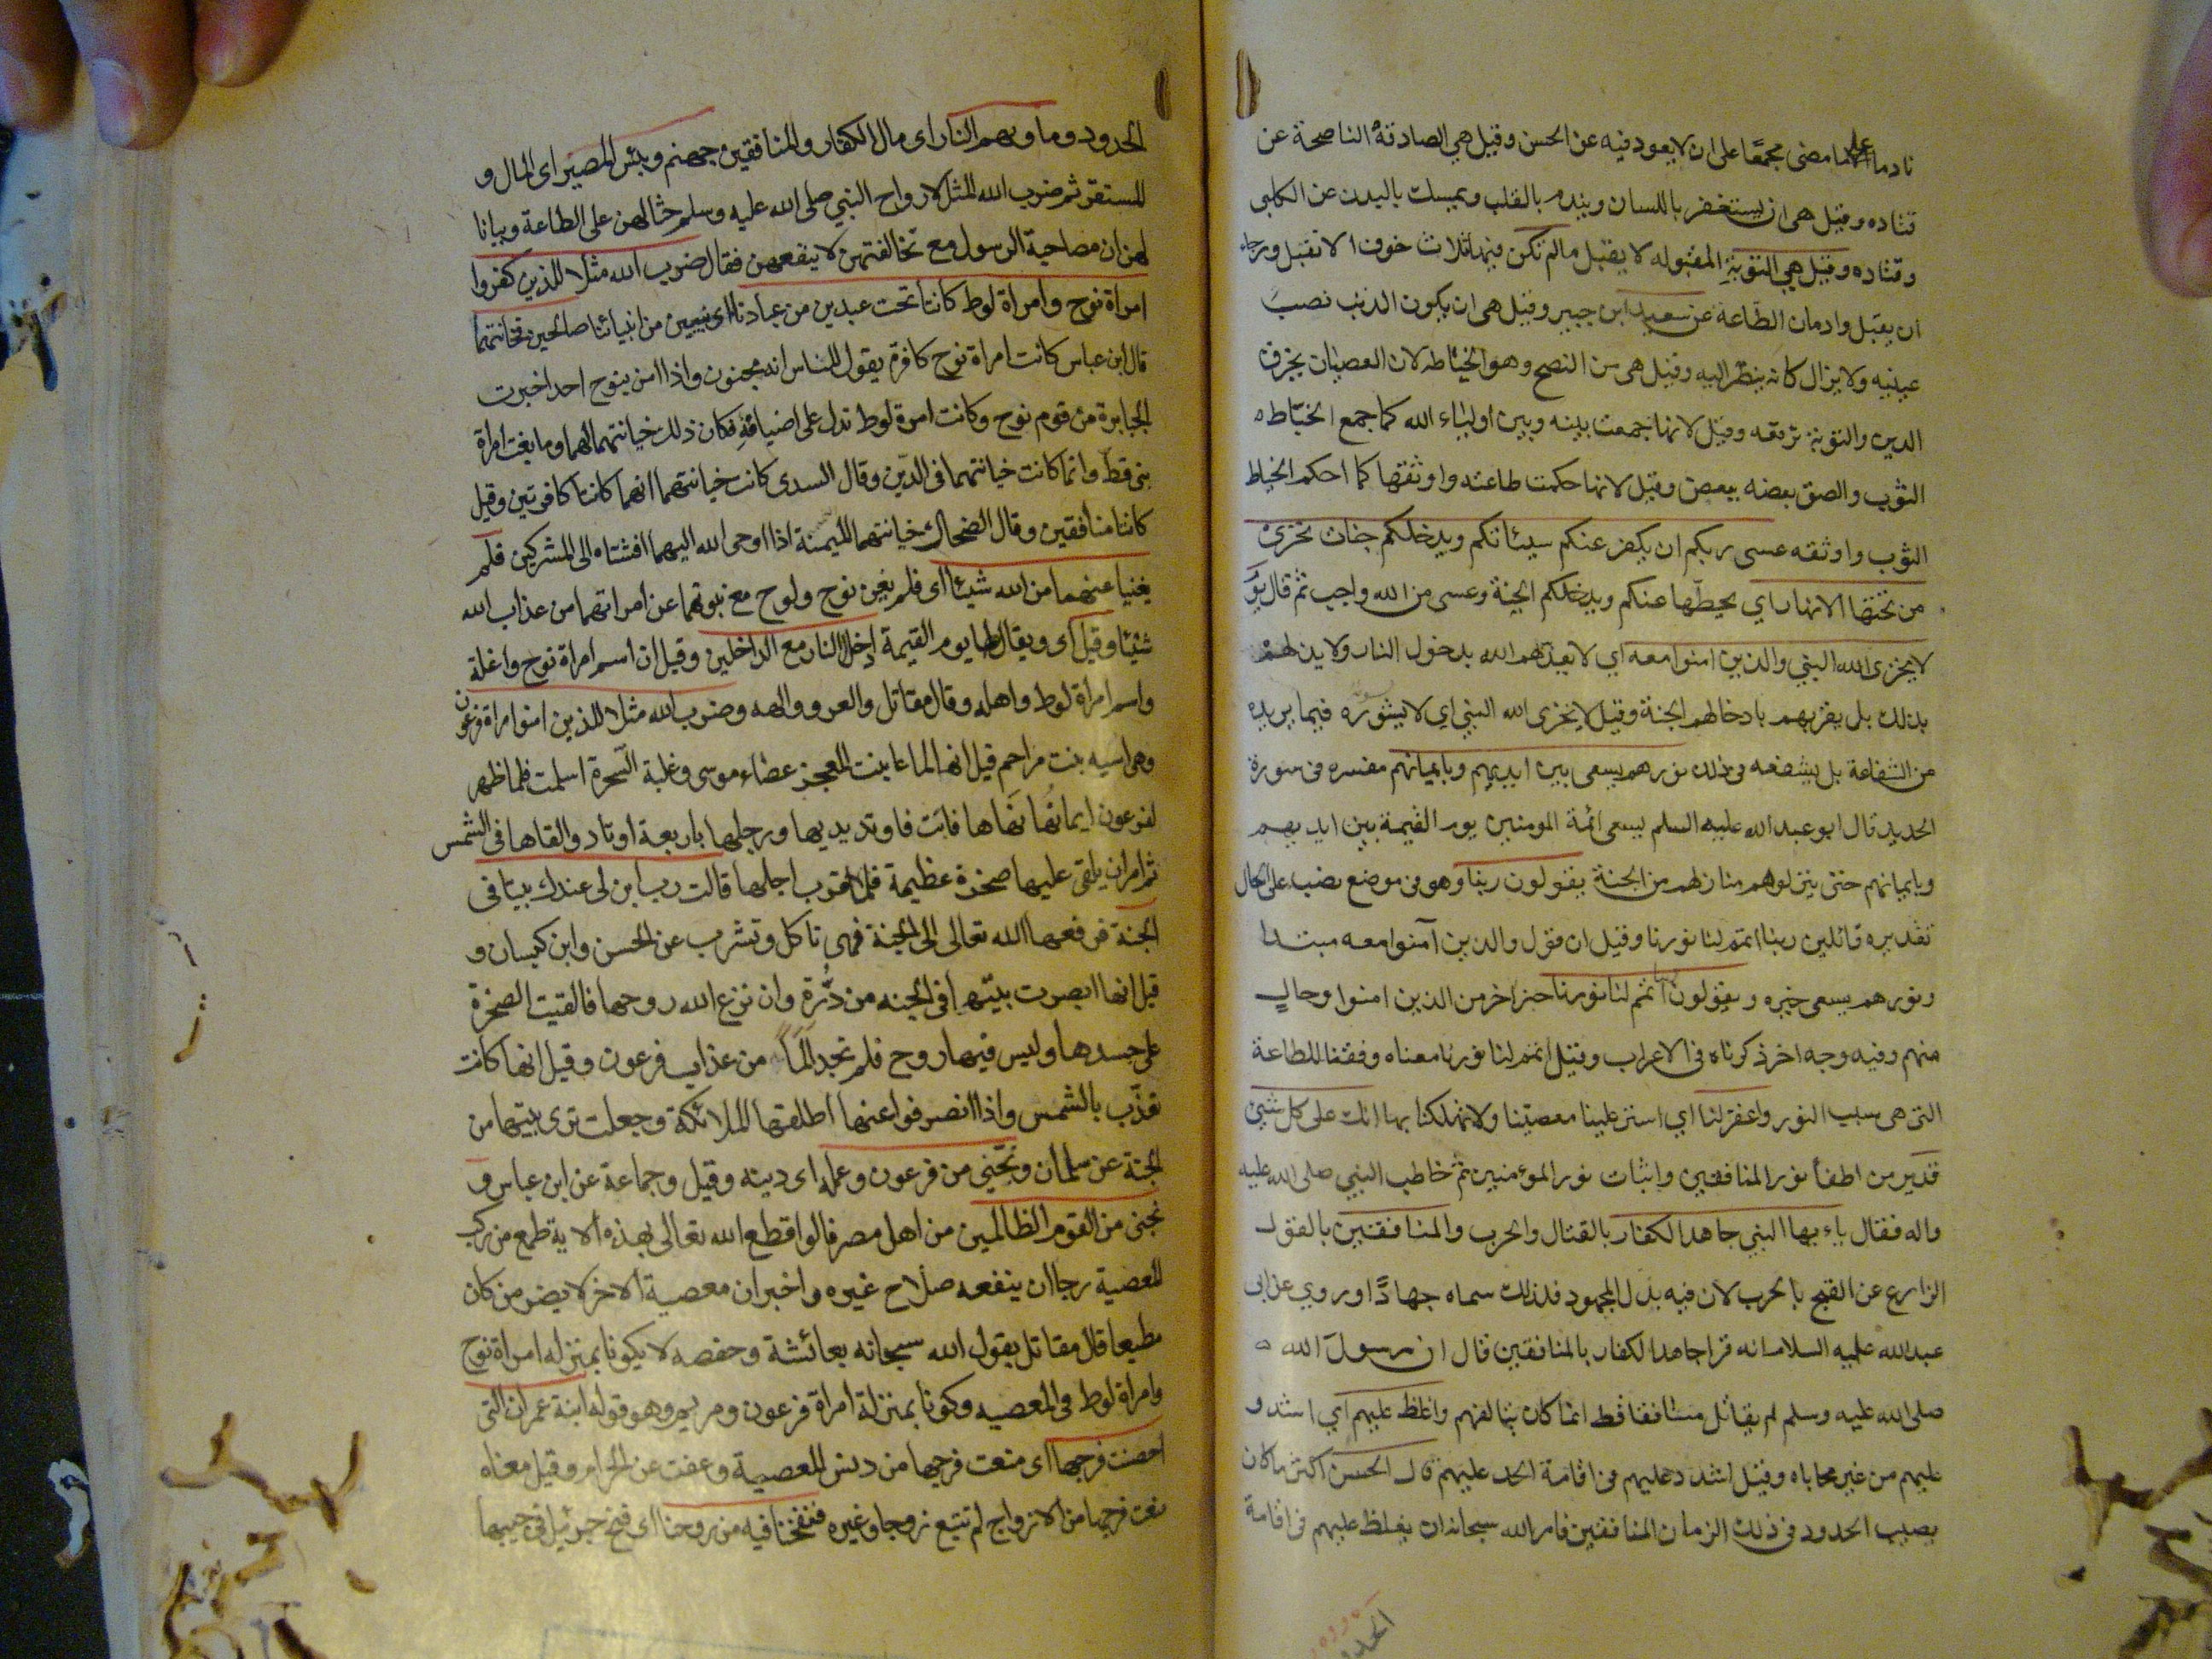 نادما على ما مضى مجمعًا على ان لا يعود فيه عن الحسن وقيل هي الصادقة الناصحة عن
قتاده وقيل هي ان يستغفر باللسان ويندم بالقلب ويمسك بالبدن عن الكلبى
وقتاده وقيل هي التوبة المقبوله لا يقبل مالم تكن فيها ثلاث خوف الا تقبل ورجاء
ان يقبل وادمان الطاعة عن سعيد ابن جبير وقيل هى ان يكون الذنب نصب
عينيه ولا يزال كانه ينظر اليه وقيل هى من النصح وهو الخياطه لان العصيان يخرق
الدين والتوبة ترقعه وقيل لانها جمعت بينه وبين اولياء الله كما جمع الخيّاط
الثوب والصق بعضه ببعض وقيل لانها حكمت طاعته واوثقتها كما احكم الخياط
الثوب واوثقه عسى ربكم ان يكفر عنكم سيئاتكم ويدخلكم جنات تجرى
من تحتها الانهار اي يحطّها عنكم ويدخلكم الجنة وعسى من الله واجب ثم قال يوم
لا يخزى الله النبي والذين امنوا معه اي لا يعذبهم الله بدخول النار ولا يذلهم
بذلك بل يقربهم بادخالهم الجنة وقيل لا يخزى الله النبي اي لا يشوره فيما يريده
من الشفاعة بل يشفعه في ذلك نورهم يسعى بين ايديهم وبايمانهم مفسره فى سورة
الحديد قال ابو عبد الله عليه السلم يسعى ائمة المومنين يوم القيمة بين ايديهم
وبايمانهم حتى ينزلوهم منازلهم من الجنة يقولون ربنا وهو فى موضع نصب على الحال
تقديره قائلين ربنا اتمم لنا نورنا وقيل ان قول والذين آمنوا معه مبتدا
ونورهم يسعى خبره ويقولون ربنا اتمم لنا نورنا خبر اخر من الذين امنوا وحال
منهم وفيه وجه اخر ذكرناه فى الاعراب وقيل اتمم لنا نورنا معناه وفقنا للطاعة
التى هى سبب النور واغفر لنا اي استر علينا معصيتنا ولا تهلكنا بها انك على كل شئ
قدير من اطفأ نور المنافقين واثبات نور المؤمنين ثم خاطب النبي صلى الله عليه
واله فقال ياءيها النبي جاهد الكفار بالقتال والحرب والمنافقين بالقول
الرادع عن القبيح لا بالحرب لان فيه بذل المجهود فلذلك سماه جهادًا وروي عن ابى
عبد الله عليه السلام انه قرا جاهد الكفار بالمنافقين قال ان رسول الله
صلى الله عليه وسلم لم يقاتل منافقا قط انما كان يتالفهم واغلظ عليهم اي اشدد
عليهم من غير محاباه وقيل اشدد عليهم فى اقامة الحد عليهم قال الحسن اكثر ما كان
يصيب الحدود فى ذلك الزمان المنافقين فامر الله سبحانه ان يغلظ عليهم فى اقامة
الحدود وماويهم النار اى مال الكفار والمنافقين جهنم وبئس المصير اى المال و
المستقر ثم ضرب الله المثل لازواج النبي صلى الله عليه وسلم حثا لهن على الطاعة وبيانا
لهن ان مصاحبة الرسول مع مخالفتهن لا ينفعهن فقال ضرب الله مثلا للذين كفروا
امراة نوح وامراة لوط كانتا تحت عبدين من عبادنا اى نبيين من انبيائنا صالحين فخانتهما
قال ابن عباس كانت امراة نوح كافرة يقول للناس انه مجنون واذا امن بنوح احد اخبرت
الجبابرة من قوم نوح وكانت امرة لوط تدل على اضيافه فكان ذلك خيانتهما لهما وما بغت امراة
نبى قطّ وانما كانت خيانتهما فى الدّين وقال السدى كانت خيانتهما انهما كانتا كافرتين وقيل
كانتا منافقين وقال الضحاك خيانتهما النميمة اذا اوحى الله اليهما افشتاه الى المشركين فلم
يغنيا عنهما من الله شيئا اى فلم يغن نوح ولوح مع نبوتهما عن امراتهما من عذاب الله
شيئا وقيل اى ويقال لها يوم القيمة ادخلا النار مع الداخلين وقيل ان اسم امراة نوح واغلة
واسم امراة لوط واهله وقال مقاتل والعر ووالهه وضرب الله مثلا للذين امنوا امراة فرعون
وهى اسيه بنت مزاحم قيل انها لما عاينت المعجز عصاء موسى وغلبة السّحرة اسلمت فلما ظهر
لفرعون ايمانُها نَهاها فابت فاوتد يديها ورجليها باربعة اوتاد والقاها فى الشمس
ثم امر ان يلقى عليها صخرة عظيمة فلما قرب اجلها قالت رب ابن لى عندك بيتا فى
الجنة فرفعها الله تعالى الى الجنة فهى تاكل وتشرب عن الحسن وابن كيسان و
قيل انها ابصرت بيتها فى الجنه من دُرَّة وان نزع الله روحها فالقيت الصخرة
على جسدها وليس فيها روح فلم تجد الَمًا من عذاب فرعون وقيل انها كانت
تعذّب بالشمس واذا انصرفوا عنها اظلتها الملائكة وجعلت ترى بيتها من
الجنة عن سلمان ونجّني من فرعون وعمله اى دينه وقيل وجماعة عن ابن عباس و
نجنى من القوم الظالمين من اهل مصر قالوا قطع الله تعالى بهذه الاية طمع من ركب
المعصية رجا ان ينفعه صلاح غيره واخبر ان معصية الاخر لا يضر من كان
مطيعا قال مقاتل يقول الله سبحانه يعائشة وحفصه لا يكونا بمنزله امراة نوح
وامراة لوط فى المعصيه وكونا بمنزلة امراة فرعون ومريم وهو قوله ابنة عمران التى
احصنت فرجها اى منعت فرجها من دنس المعصية وعفت عن الحرام وقيل معناه
منعت فرجها من الازواج لم تتبع زوجا وغيره فنفخنا فيه من روحنا اى فنفخ جبرئيل فى جيبها
الحدود